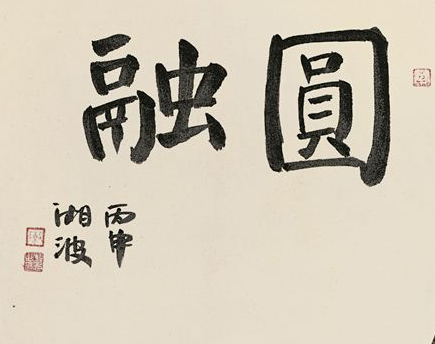 圓融
丙申
湘波